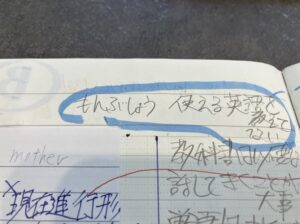 もんぶしょう 使える英語を
教えて
ない
mother
教科書は不
話してきくことが
大事
×現在進行形